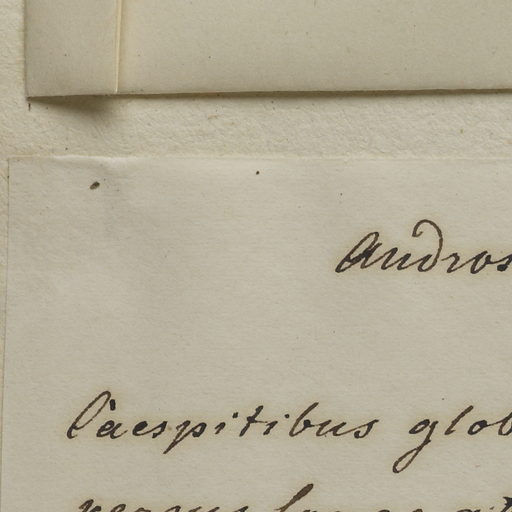 Andros
Càespitibus glob